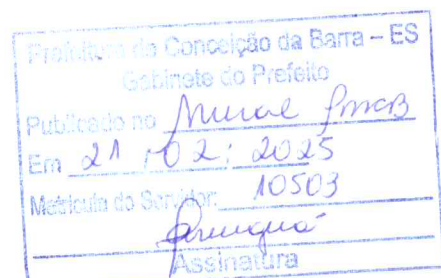 Prefeitura de Conceição da Barra – ES
Gabinete do Prefeito
Publicado no Mural PMCB
Em 21 / 02 / 2025
Matrícula do Servidor: 10503
Assinatura